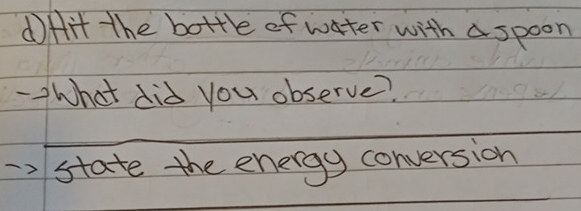 d) Hit the bottle of water with a spoon
-> What did you observe?
-> state the energy conversion